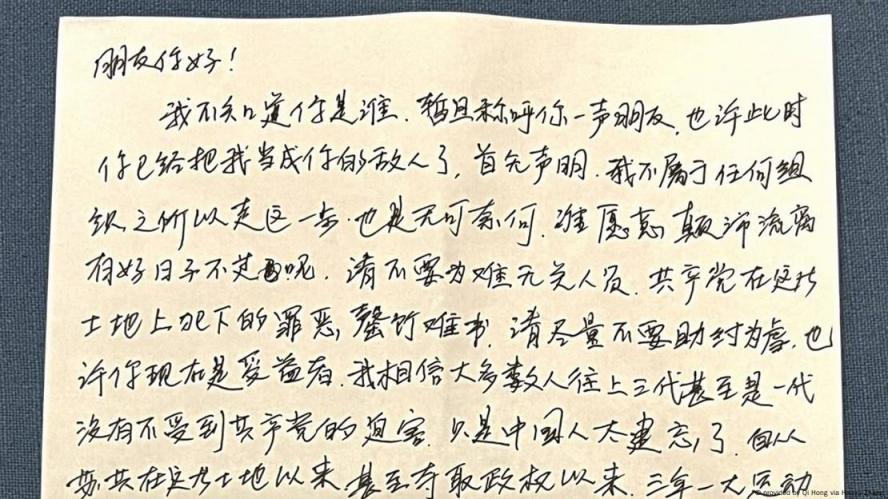 朋友你好!
我不知道你是谁.暂且称呼你一声朋友,也许此时
你已给把我当成你的敌人了,首先声明.我不属于任何组
织之所以走这一步.也是无可奈何.谁愿意颠沛流离
有好日子不过呢.请不要为难无关人员.共产党在这片
土地上犯下的罪恶,罄竹难书.请尽量不要助纣为虐.也
许你现在是受益者.我相信大多数人往上三代甚至是一代
没有不受到共产党的迫害.只是中国人太健忘了.自从
苏共在这片土地以来.甚至夺取政权以来.三年一大运动
provided by Qi Hong via